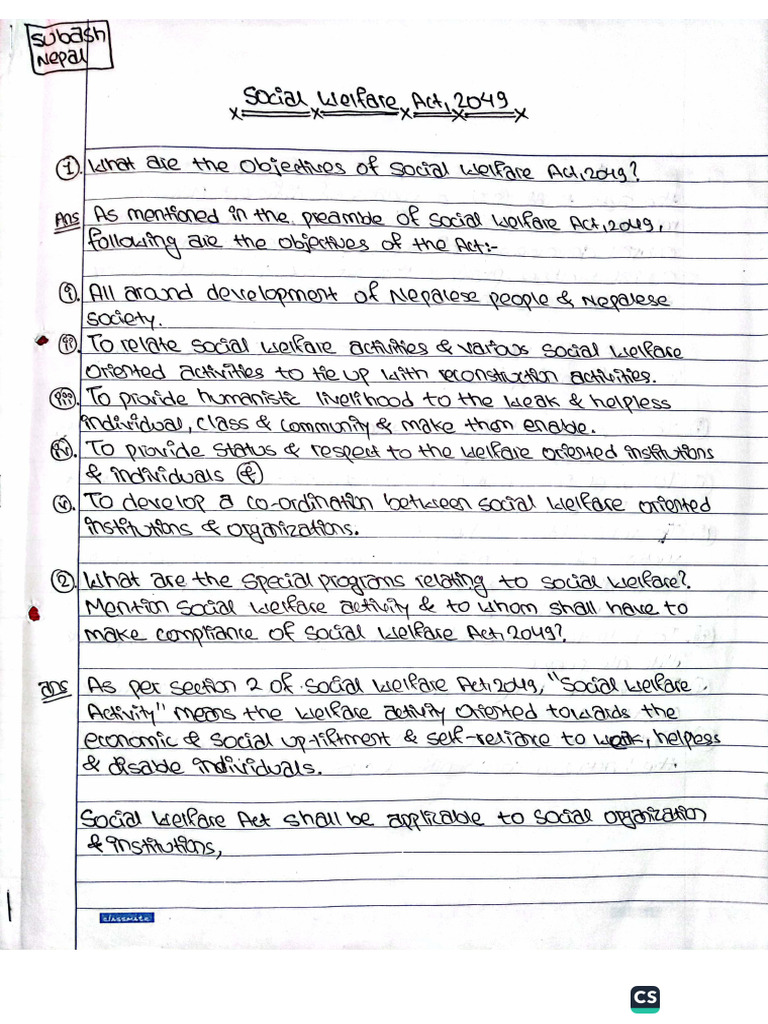 Subash
Nepal
Social Welfare Act, 2049
① What are the objectives of Social Welfare Act, 2049?
Ans As mentioned in the preamble of Social Welfare Act, 2049,
following are the objectives of the Act:-
(i). All around development of Nepalese people & Nepalese
society.
(ii). To relate social welfare activities & various social welfare
oriented activities to tie up with reconstruction activities.
(iii). To provide humanistic livelihood to the weak & helpless
individual, class & community & make them enable.
(iv). To provide status & respect to the welfare oriented institutions
& individuals (&)
(v). To develop a co-ordination between social welfare oriented
institutions & organizations.
②. What are the special programs relating to social welfare?
Mention social welfare activity & to whom shall have to
make compliance of Social Welfare Act, 2049?
ans As per section 2 of Social Welfare Act, 2049, "Social Welfare
Activity" means the welfare activity oriented towards the
economic & social up-liftment & self-reliance to weak, helpless
& disable individuals.
Social Welfare Act shall be applicable to social organization
& institutions,
classmate
CS